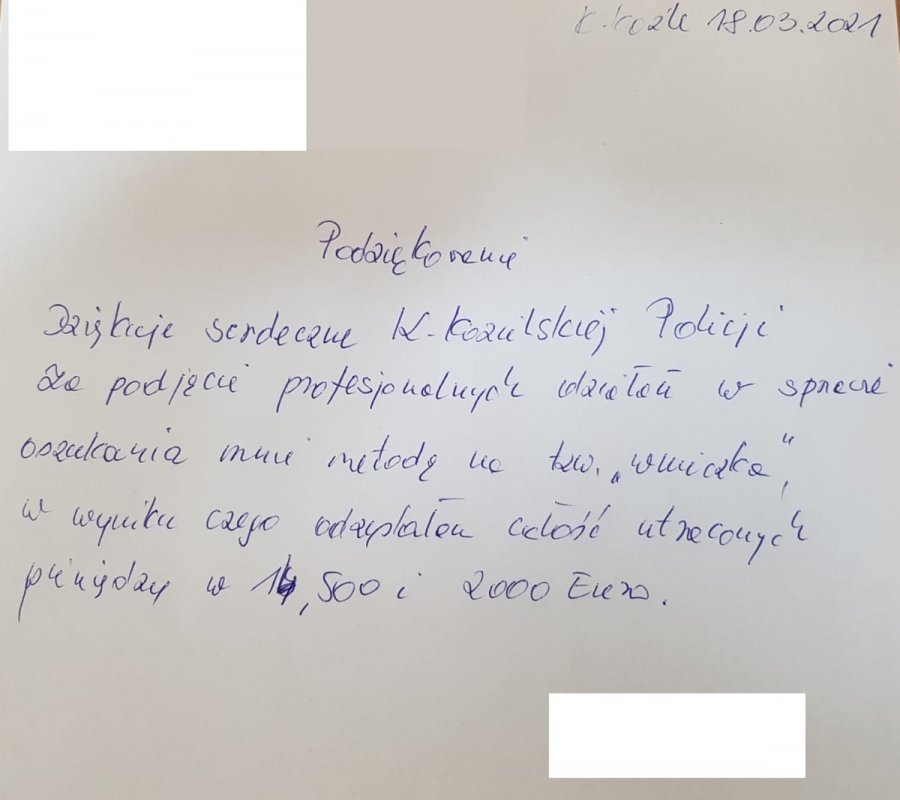 K-Koźle 18.03.2021
Podziękowanie
Dziękuję serdecznie K-Kozielskiej Policji
Za podjęcie profesjonalnych działań w sprawie
oszukania mnie metodą na tzw. „wnuczka",
w wyniku czego odzyskałem całość utraconych
pieniędzy w 14,500 i 2000 Euro.